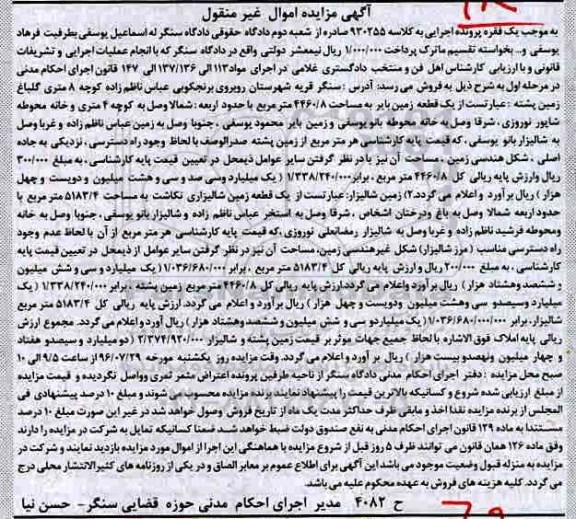 آگهی مزایده اموال غیر منقول
به موجب یک فقره پرونده اجرایی به کلاسه ۹۳۰۲۵۵ صادره از شعبه دوم دادگاه حقوقی دادگاه سنگر له اسماعیل یوسفی بطرفیت فرهاد
یوسفی و... بخواسته تقسیم ماترک پرداخت ۱/۰۰۰/۰۰۰ ریال نیمعشر دولتی واقع در دادگاه سنگر که با انجام عملیات اجرایی و تشریفات
قانونی و با ارزیابی کارشناس اهل فن و منتخب دادگستری غلامی در اجرای مواد ۱۱۳ الی ۱۳۷/۱۳۶ ۱۴۷ قانون اجرای احکام مدنی
در مرحله اول به شرح ذیل به فروش می رسد: آدرس : سنگر قریه شهرستان روبروی برنجکوبی عباس ناظم زاده کوچه ۸ متری گلباغ
زمین پشته : عبارتست از یک قطعه زمین بایر به مساحت ۴۴۶۰/۸ متر مربع با حدود اربعه :شمالا وصل به کوچه ۴ متری و خانه محوطه
شاپور نوروزی ، شرقا وصل به خانه محوطه بانو یوسفی و زمین بایر محمود یوسفی ، جنوبا وصل به زمین عباس ناظم زاده و غربا وصل
به شالیزار بانو یوسفی ، که قیمت پایه کارشناسی هر متر مربع از زمین پشته صدرالوصف با لحاظ وجود راه دسترسی ، نزدیکی به جاده
اصلی ، شکل هندسی زمین ، مساحت آن نیز با در نظر گرفتن سایر عوامل ذیمحل در تعیین قیمت پایه کارشناسی ، به مبلغ ۳۰۰/۰۰۰
ریال وارزش پایه ریالی کل ۴۴۶۰/۸ متر مربع ، برابر ۱/۳۳۸/۲۴۰/۰۰۰ ( یک میلیارد وسی صد و سی و هشت میلیون و دویست و چهل
هزار ) ریال بر آورد و اعلام می گردد.۲) زمین شالیزار: عبارتست از یک قطعه زمین شالیزاری نکاشت به مساحت ۵۱۸۳/۴ متر مربع با
حدود اربعه شمالا وصل به باغ ودرختان اشخاص ، شرقا وصل به استخر عباس ناظم زاده و شالیزار بانو یوسفی ، جنوبا وصل به خانه
ومحوطه فرشید ناظم زاده و غربا وصل به شالیزار رمضانعلی نوروزی ،که قیمت پایه کارشناسی هر متر مربع از آن با لحاظ عدم وجود
راه دسترسی مناسب ( مرز شالیزار) شکل غیرهندسی زمین، مساحت آن نیز در نظر گرفتن سایر عوامل از ذیمحل در تعیین قیمت پایه
کارشناسی ، به مبلغ ۲۰۰/۰۰۰ ریال و ارزش پایه ریالی کل ۵۱۸۳/۴ متر مربع ، برابر ۱/۰۳۶/۶۸۰/۰۰۰( یک میلیارد و سی و شش میلیون
و ششصد وهشتاد هزار) ریال برآورد واعلام می گردد.ارزش پایه ریالی کل ۴۴۶۰/۸ متر مربع زمین پشته ، برابر ۱/۳۳۸/۲۴۰/۰۰۰ ( یک
میلیارد وسیصدو سی وهشت میلیون ودویست و چهل هزار ) ریال بر آورد و اعلام می گردد. ارزش پایه ریالی کل ۵۱۸۳/۴ متر مربع
شالیزار، برابر ۱/۰۳۶/۶۸۰/۰۰۰( یک میلیاردو سی و شش میلیون و ششصد وهشتاد هزار) ریال بر آورد واعلام می گردد. مجموع ارزش
ریالی پایه املاک فوق الاشاره با لحاظ جمیع جهات موثر بر قیمت زمین پشته و شالیزار ۲/۳۷۴/۹۲۰/۰۰۰ ( دو میلیارد و سیصدو هفتاد
و چهار میلیون ونهصدو بیست هزار ) ریال بر آورد و اعلام می گردد. وقت مزایده روز یکشنبه مورخه ۹۶/۰۷/۲۹ از ساعت ۹/۵ الی ۱۰
صبح محل مزایده : دفتر اجرای احکام مدنی دادگاه سنگر از ناحیه طرفین پرونده اعتراض مثمر ثمری وواصل نگردیده و قیمت مزایده
از مبلغ ارزیابی شده شروع و کسانیکه بالاترین قیمت را پیشنهاد نمایند برنده مزایده محسوب می شوند و مبلغ ۱۰ درصد پیشنهادی فی
المجلس از برنده مزایده نقدا اخذ و مابقی ظرف حداکثر مدت یک ماه از تاریخ فروش وصول خواهد شد در غیر این صورت مبلغ ۱۰ درصد
مستندا به ماده ۱۲۹ قانون اجرای احکام مدنی به نفع صندوق دولت ضبط خواهد شد ضمنا کسانیکه تمایل به شرکت در مزایده را دارند
وفق ماده ۱۲۶ همان قانون می توانند ظرف ۵ روز قبل از شروع مزایده با هماهنگی این اجرا از اموال مورد مزایده بازدید نمایند و شرکت در
مزایده به منزله قبول وضعیت موجود می باشد این آگهی برای اطلاع عموم بر معابر الصاق و در یکی از روزنامه های کثیرالانتشار محلی درج
می گردد. کلیه هزینه های فروش به عهده محکوم علیه می باشد.
ح ۴۰۸۲ مدیر اجرای احکام مدنی حوزه قضایی سنگر- حسن نیا